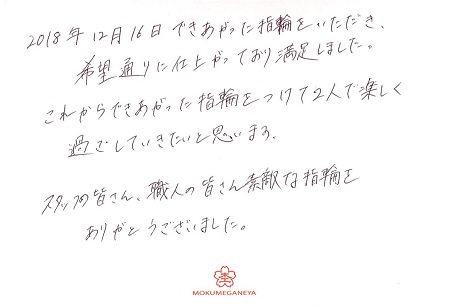 2018年12月16日 できあがった指輪をいただき、
希望通りに仕上がっており満足しました。
これからできあがった指輪をつけて2人で楽しく
過ごしていきたいと思います。
スタッフの皆さん、職人の皆さん素敵な指輪を
ありがとうございました。
MOKUMEGANEYA